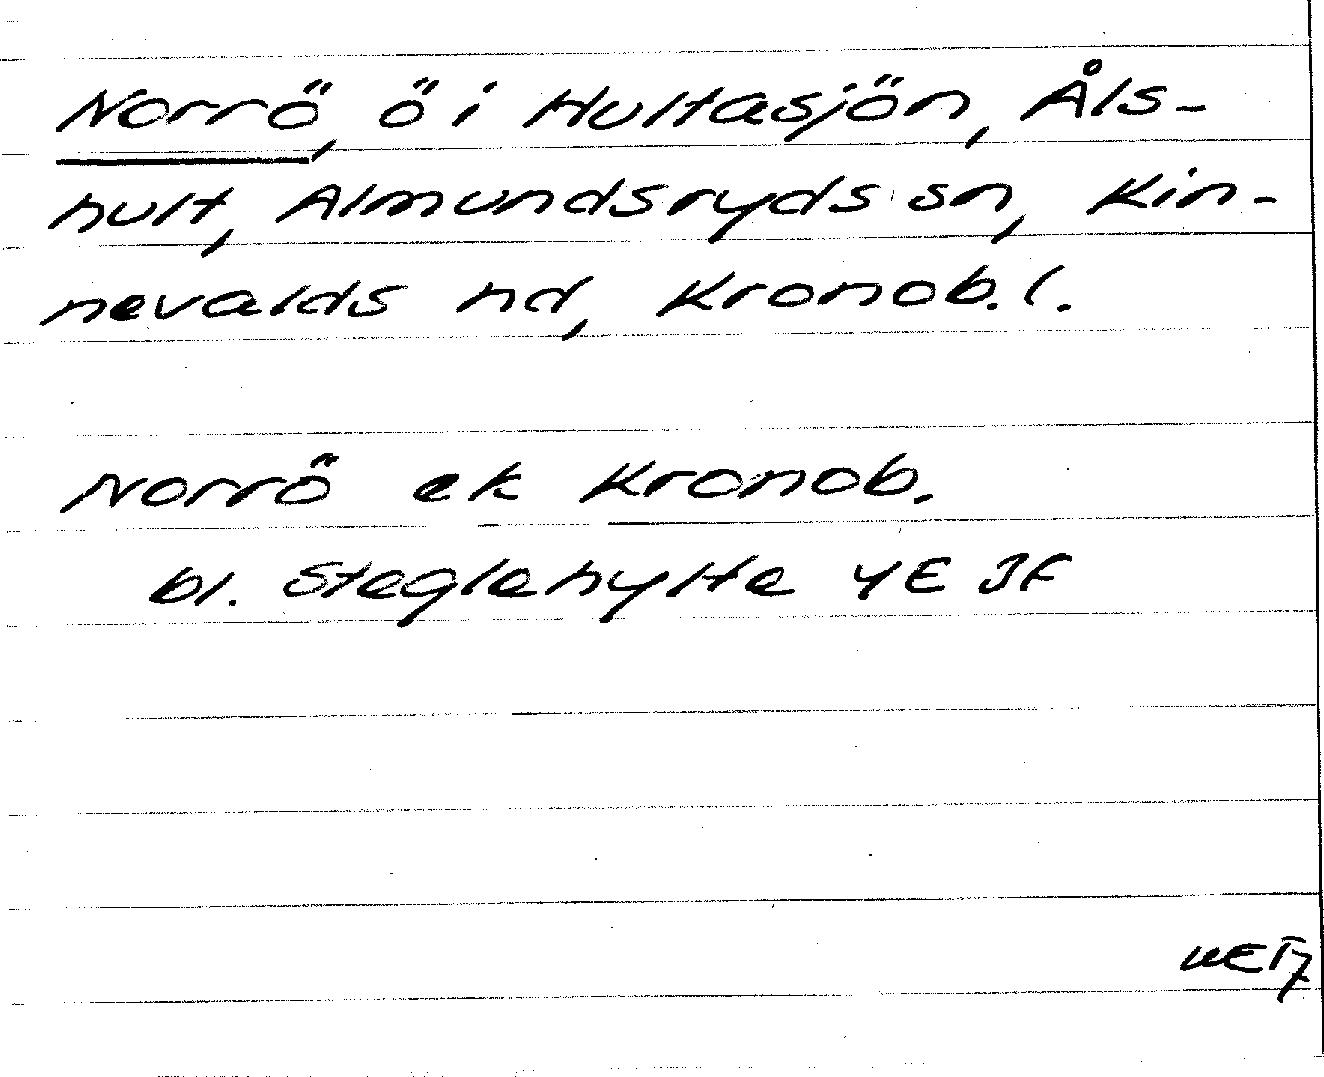 Norrö, ö i Hultasjön, Åls-
hult, Almundsryds sn, Kin-
nevalds hd, Kronob. l.
Norrö ek Kronob.
bl. Steglehylte 4E 3f